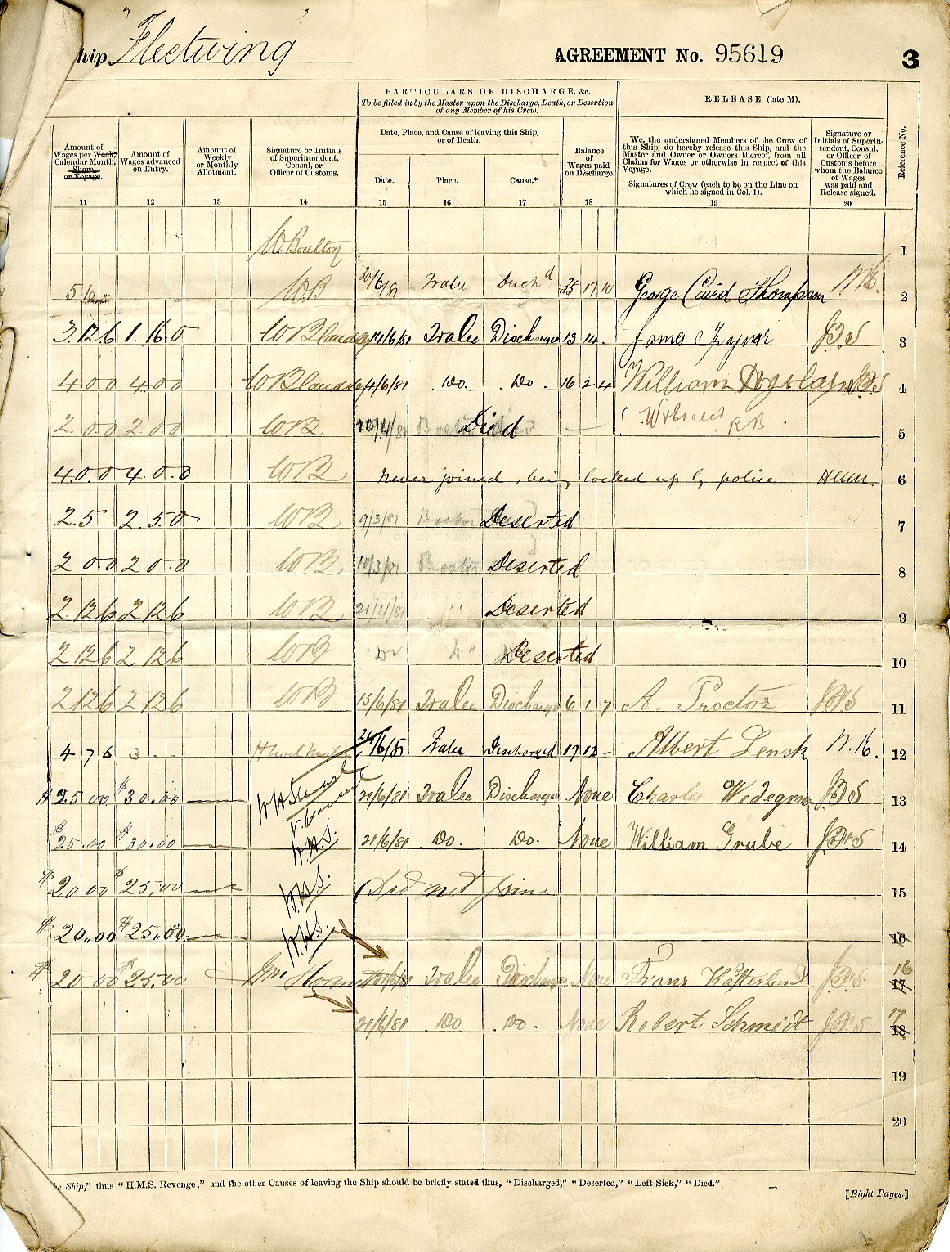 Ship Fleetwing
AGREEMENT No. 95619
3
PARTICULARS OF DISCHARGE, &c.
To be filled in by the Master upon the Discharge, Death, or Desertion
of any Member of his Crew.
RELEASE (into M).
Reference No.
Amount of
Wages per Week,
Calendar Month,
Share,
or Voyage.
11
Amount of
Wages advanced
on Entry.
12
Amount of
Weekly
or Monthly
Allotment.
13
Signature or Initials
of Superintendent,
Consul, or
Officer of Customs.
14
Date, Place, and Cause of leaving this Ship,
or of Death.
Date.
15
Place.
16
Cause.*
17
Balance
of
Wages paid
on Discharge.
18
We, the undersigned Members of the Crew of
this Ship, do hereby release this Ship, and the
Master and Owner or Owners thereof, from all
Claims for Wages or otherwise in respect of this
Voyage.
Signatures of Crew (each to be on the Line on
which he signed in Col. 1).
19
Signature or
Initials of Superin-
tendent, Consul,
or Officer of
Customs before
whom the Balance
of Wages
was paid and
Release signed.
20
W Boulton 1
5 WB 20/6/81 Tralee Disch'd 25 17 10 George Caird Thompson 2
3.12.6 1 16.0 14/6/81 Tralee Discharge 13 14 JBS 3
4.0.0 4.0.0 14/6/81 Do. Do. 16 2 4 William JBS 4
2.0.0 2.0.0 WB Died 5
4.0.0 4.0.0 WB never joined, being locked up by police 6
2.5 2.5.0 WB 9/3/81 Deserted 7
2.0.0 2.0.0 WB 10/3/81 Deserted 8
2.12.6 2 12 6 WB Deserted 9
2 12 6 2 12 6 WB Do Deserted 10
2 12 6 2 12 6 WB 15/6/81 Tralee Discharge 6 1 7 A. Proctor JBS 11
4 7 6 3 21/6/81 Tralee Discharged 17 12 - Albert Lensk 12
$25.00 $30.00 21/6/81 Tralee Discharge None Charles JBS 13
$25.00 $30.00 W.H.S. 21/6/81 Do. Do. None William Grube JBS 14
$20.00 $25.00 W.H.S. Did not join 15
$20.00 $25.00 W.H.S. 16
$20.00 $25.00 Tralee Discharge None Franz JBS 16 17
21/6/81 Do Do. None Robert Schmidt JBS 17 18
19
20
Ship," thus "H.M.S. Revenge," and the other Causes of leaving the Ship should be briefly stated thus, "Discharged," "Deserted," "Left Sick," "Died."
[Eight Pages.]